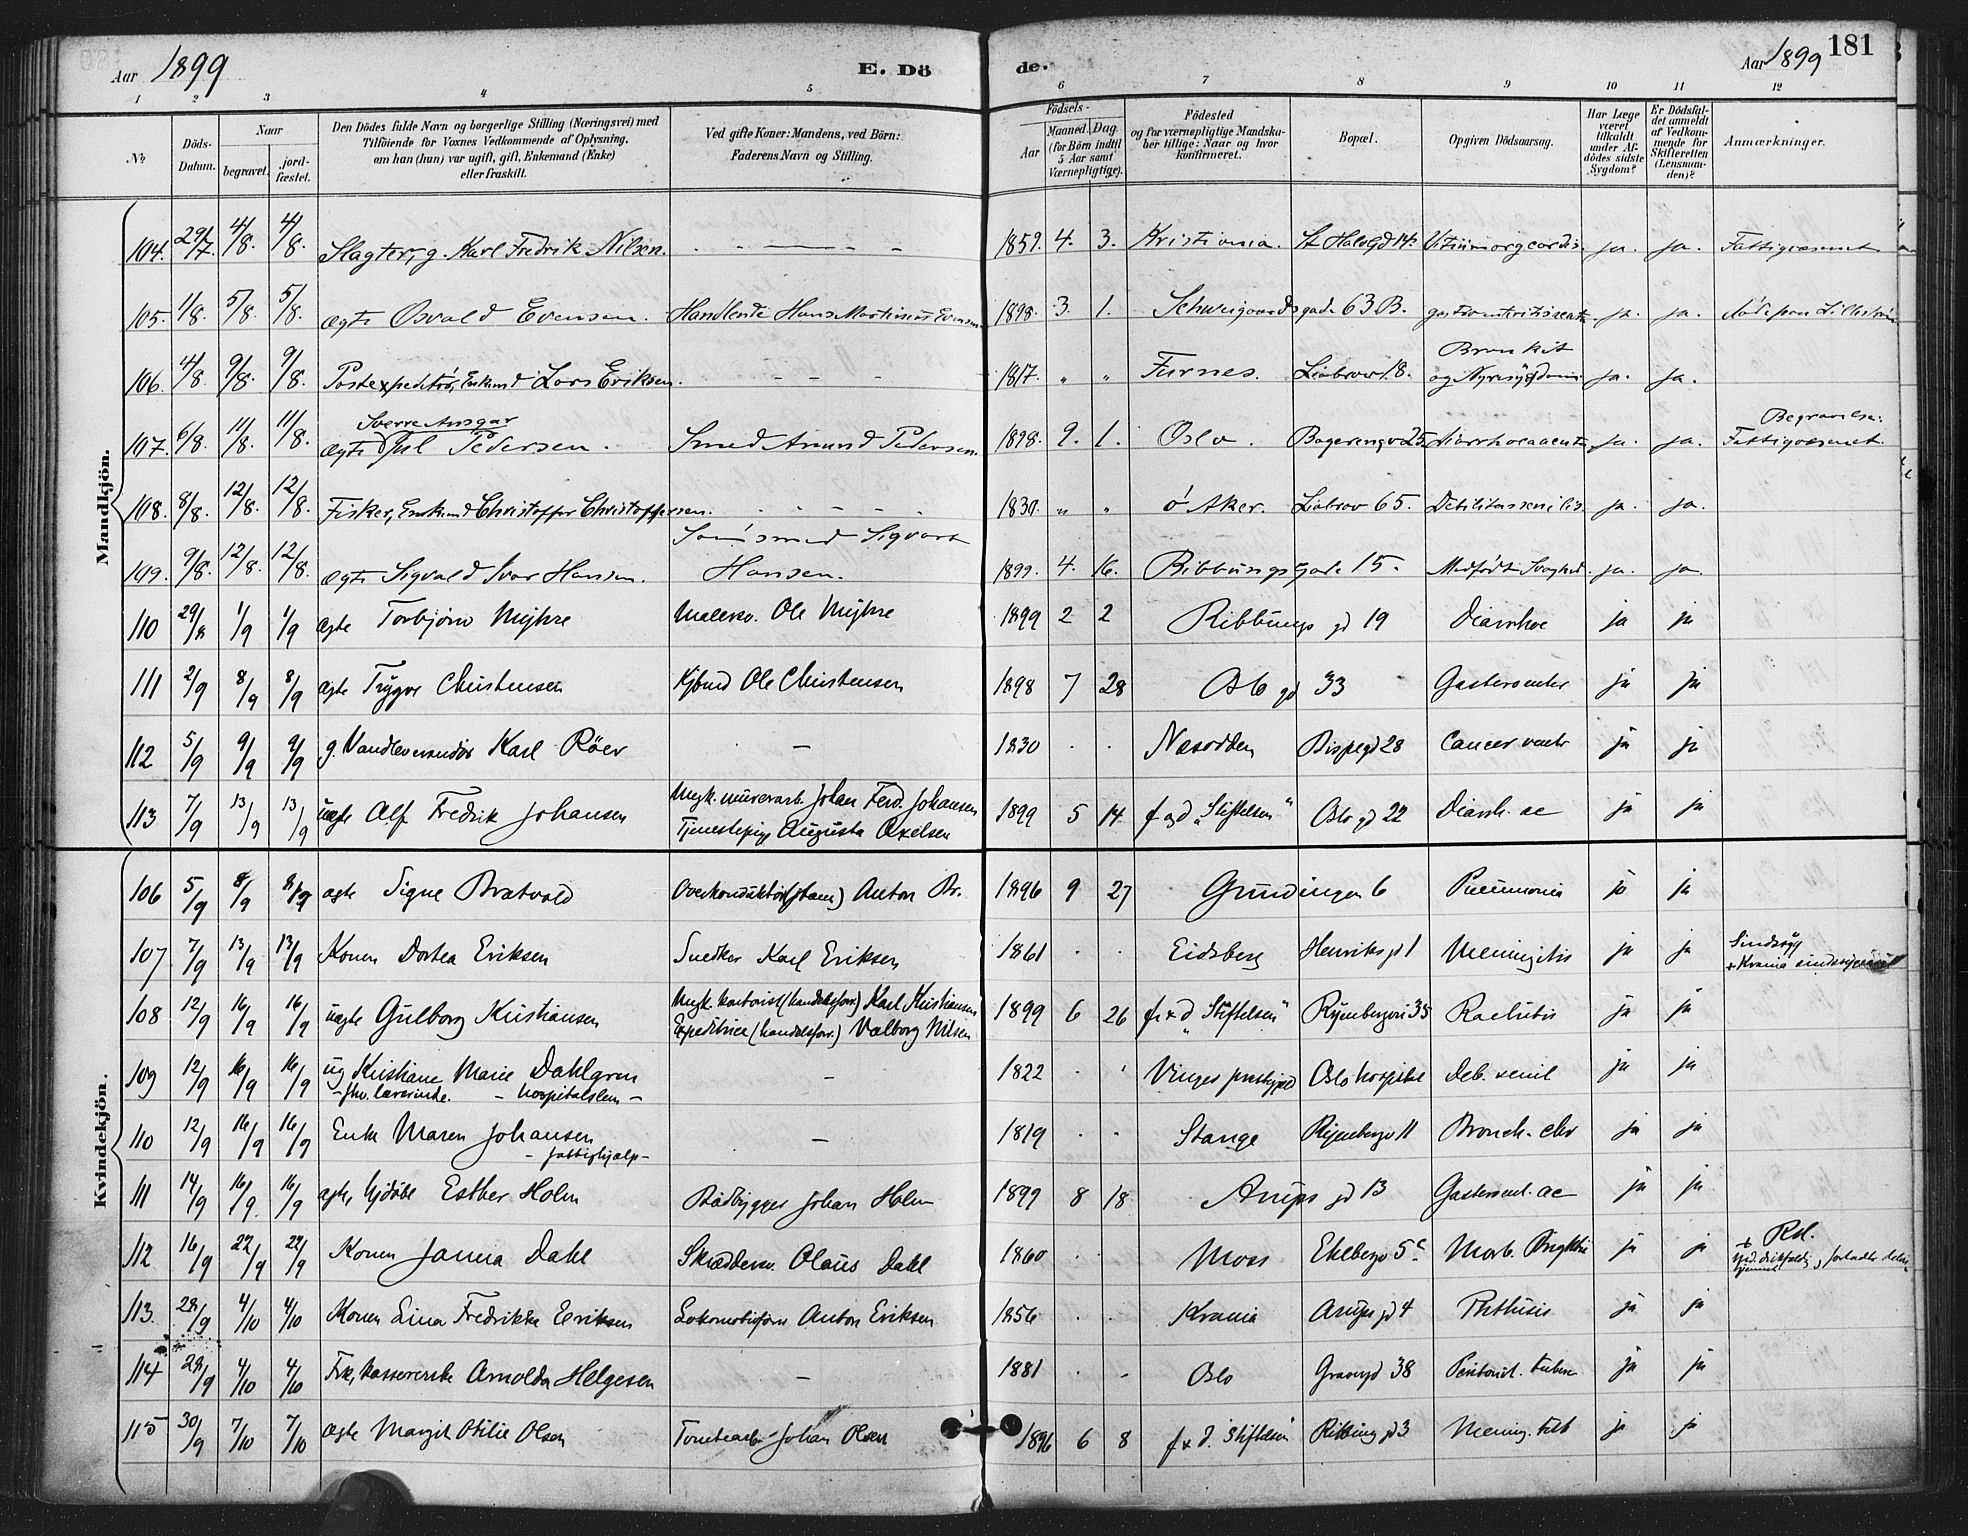 Aar 1899 E. Dö de. Aar 1899 181
1 2 3 4 5 6 7 8 9 10 11 12
No
Döds-Datum.
Naar
begravet.
jord-fæstet.
Den Dödes fulde Navn og borgerlige Stilling (Næringsvei) med
Tilföiende for Voxnes Vedkommende af Oplysning,
om han (hun) var ugift, gift, Enkemand (Enke)
eller fraskilt.
Ved gifte Koner: Mandens, ved Börn:
Faderens Navn og Stilling.
Födsels-
Aar
Maaned. Dag.
(for Börn indtil
5 Aar samt
Værnepligtige).
Födested
og for værnepligtige Mandska-
ber tillige: Naar og hvor
konfirmeret.
Bopæl.
Opgiven Dödsaarsag.
Har Læge
været
tilkaldt
under Af-
dödes sidste
Sygdom?
Er Dödsfal-
det anmeldt
af Vedkom-
mende for
Skifteretten
(Lensman-
den)?
Anmærkninger.
Mandkjön.
104. 29/7. 4/8. 4/8. Slagter, g. Karl Fredrik Nilsen. 1859. 4. 3. Kristiania. St Halvgd 14. Vitium org cordis. ja. ja. Fattigvæsenet
105. 1/8. 5/8. 5/8. ægte Osvald Evensen. Handlende Hans Martinius Evensen 1898. 3. 1. Schweigaardsgade 63 B. ja. ja. Död paa Lilleström
106. 4/8. 9/8. 9/8. Postexpeditör, Enkmd Lars Eriksen. 1817. " " Furnes. Liabrov 18. Bronkit
og Nyresygdom ja. ja.
Sverre Ansgar
107. 6/8. 11/8. 11/8. ægte Pedersen. Smed Amund Pedersen. 1898. 9. 1. Oslo. Bøgerengv 25. Diarrhoea acuta ja. ja. Begravelse:
Fattigvæsenet
108. 8/8. 12/8. 12/8. Fisker, Enkmd Christoffer Christoffersen. 1830. " " Ö Aker. Liabrov 65. Debilitas senilis. ja. ja.
109. 9/8. 12/8. 12/8. ægte Sigvald Ivar Hansen. Smed Sigvart
Hansen. 1899. 4. 16. Ribbungsgade 15. Medfödt Svaghed. ja. ja.
110 29/8 1/9 1/9 ægte Torbjörn Myhre Malersv. Ole Myhre 1899 2 2 Ribbungs gd 19 Diarrhoe ja ja
111 2/9 8/9 8/9 ægte Trygve Christensen Kjbmd Ole Christensen 1898 7 28 Oslo gd 33 Gastroenter ja ja
112 5/9 9/9 9/9 g. Vandleverandör Karl Röer — 1830 Næsodden Bispegd 28 Cancer ventr ja ja
113 7/9 13/9 13/9 uægte Alf Fredrik Johansen Ungk. murerarb. Johan Ferd. Johansen
Tjenestepige Augusta Axelsen 1899 5 14 f og d "Stiftelsen" Oslo gd 22 Diarrh. ac ja ja
Kvindekjön.
106 5/9 8/9 8/9 ægte Signe Bratvold Overkonduktör Anton Br. 1896 9 27 Gründingen 6 Pneumonia ja ja
107 7/9 13/9 13/9 Konen Dortea Eriksen Snedker Karl Eriksen 1861 Eidsberg Henriksgd 1 Meningitis ja ja Sindssyg
+ Krania sindssygeasyl
108 12/9 16/9 16/9 uægte Gulborg Kristiansen Ungk. kontorist (handelsforr.) Karl Kristiansen
Expeditrice (handelsforr.) Valborg Nilsen 1899 6 26 f. x d "Stiftelsen" Ryenbergvei 35 Rachitis ja ja
109 12/9 16/9 16/9 ug Kristiane Marie Dahlgren
- fhv. lærerinde. - hospitalslem - — 1822 Vinger prstgjeld Oslo hospital Deb. senil ja ja
110 12/9 16/9 16/9 Enke Maren Johansen
- fattighjælp - — 1819 Stange Ryenbergv 11 Bronch. chr ja ja
111 14/9 16/9 16/9 ægte, hjdöbt Esther Holm Baadbygger Johan Holm 1899 8 18 Arups gd 13 Gastroent. ac ja ja
112 16/9 22/9 22/9 Konen Janna Dahl Skræddersv. Olaus Dahl 1860 Moss Ekebergv 5c Morb. Brightii ja ja + Rh.
113. 28/9 4/10 4/10 Konen Lina Fredrikke Eriksen Lokomotivförer Anton Eriksen 1856 Krania Arups gd 4 Phthisis ja ja
114 29/9 4/10 4/10 Frk, kassererske Arnolda Helgesen — 1881 Oslo Grønlgd 38 Peritonit. tuberc ja ja
115 30/9 7/10 7/10 ægte Margit Otilie Olsen Tomtearb. Johan Olsen 1896 6 8 f x d. "Stiftelsen" Ribbunggd 3 Mening. tub ja ja